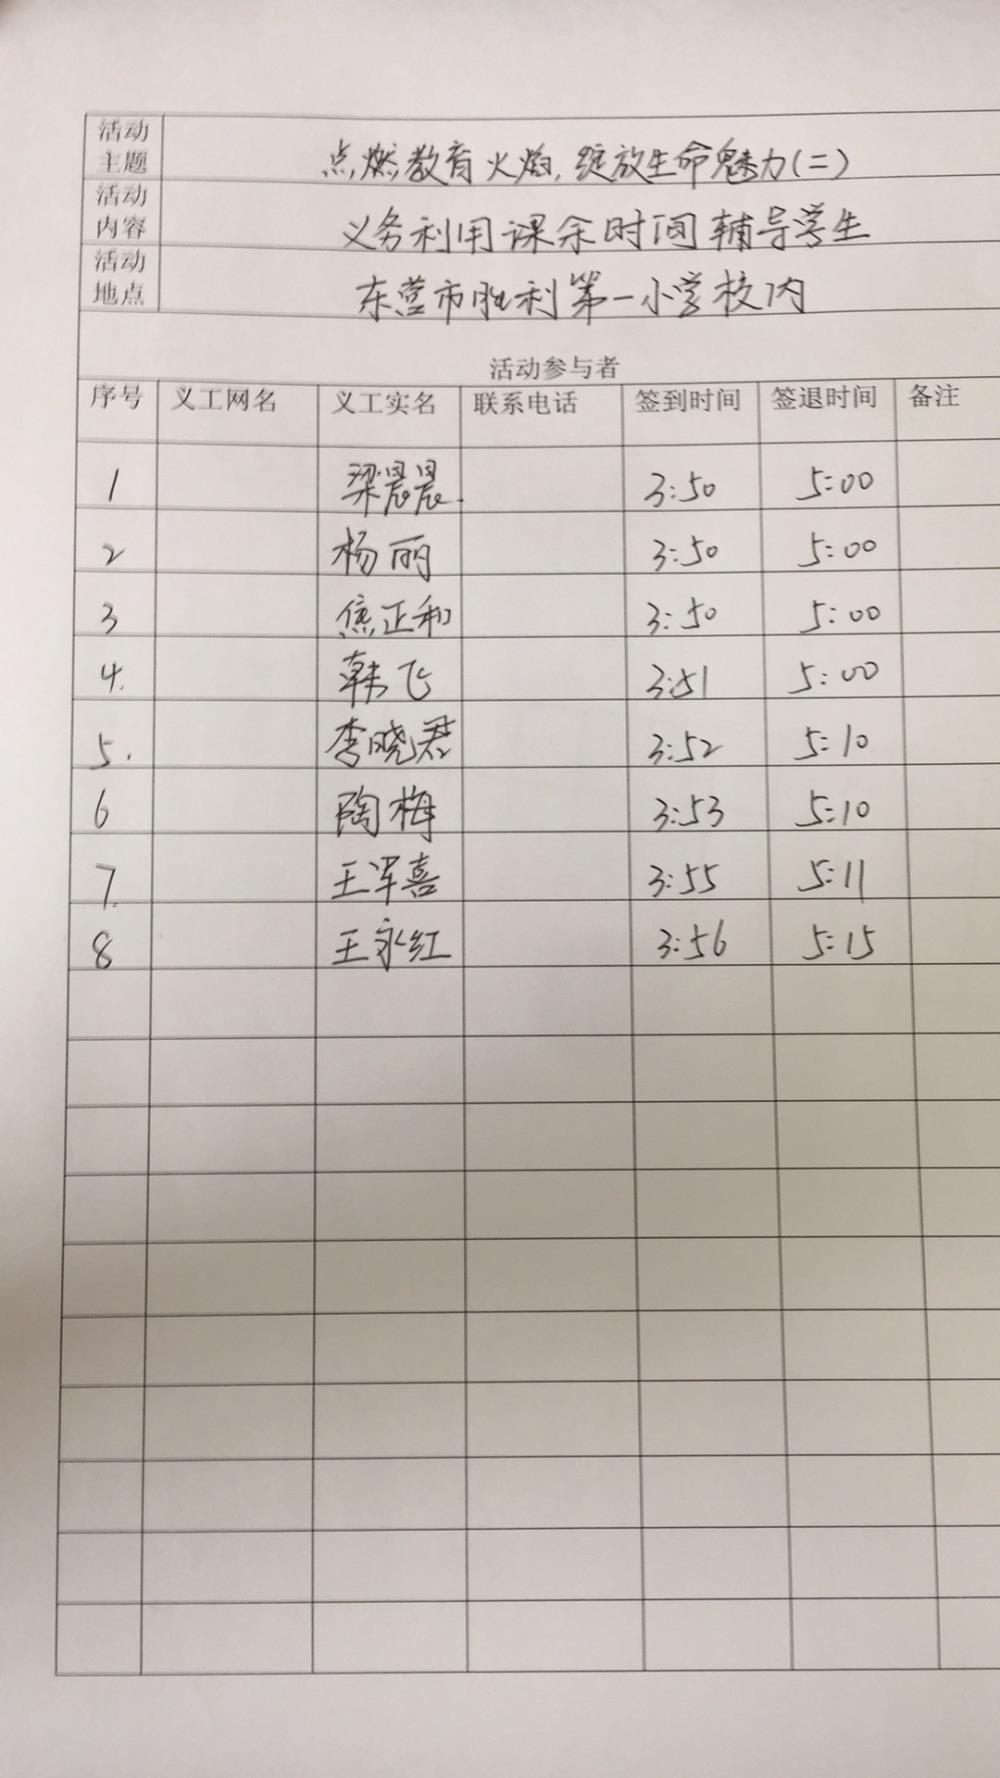 活动主题 点燃教育火焰，绽放生命魅力(二)
活动内容 义务利用课余时间辅导学生
活动地点 东营市胜利第一小学校内
活动参与者
序号 义工网名 义工实名 联系电话 签到时间 签退时间 备注
1 梁晨晨 3:50 5:00
2 杨丽 3:50 5:00
3 焦正和 3:50 5:00
4. 韩飞 3:51 5:00
5. 李晓君 3:52 5:10
6 陶梅 3:53 5:10
7. 王军喜 3:55 5:11
8 王永红 3:56 5:15